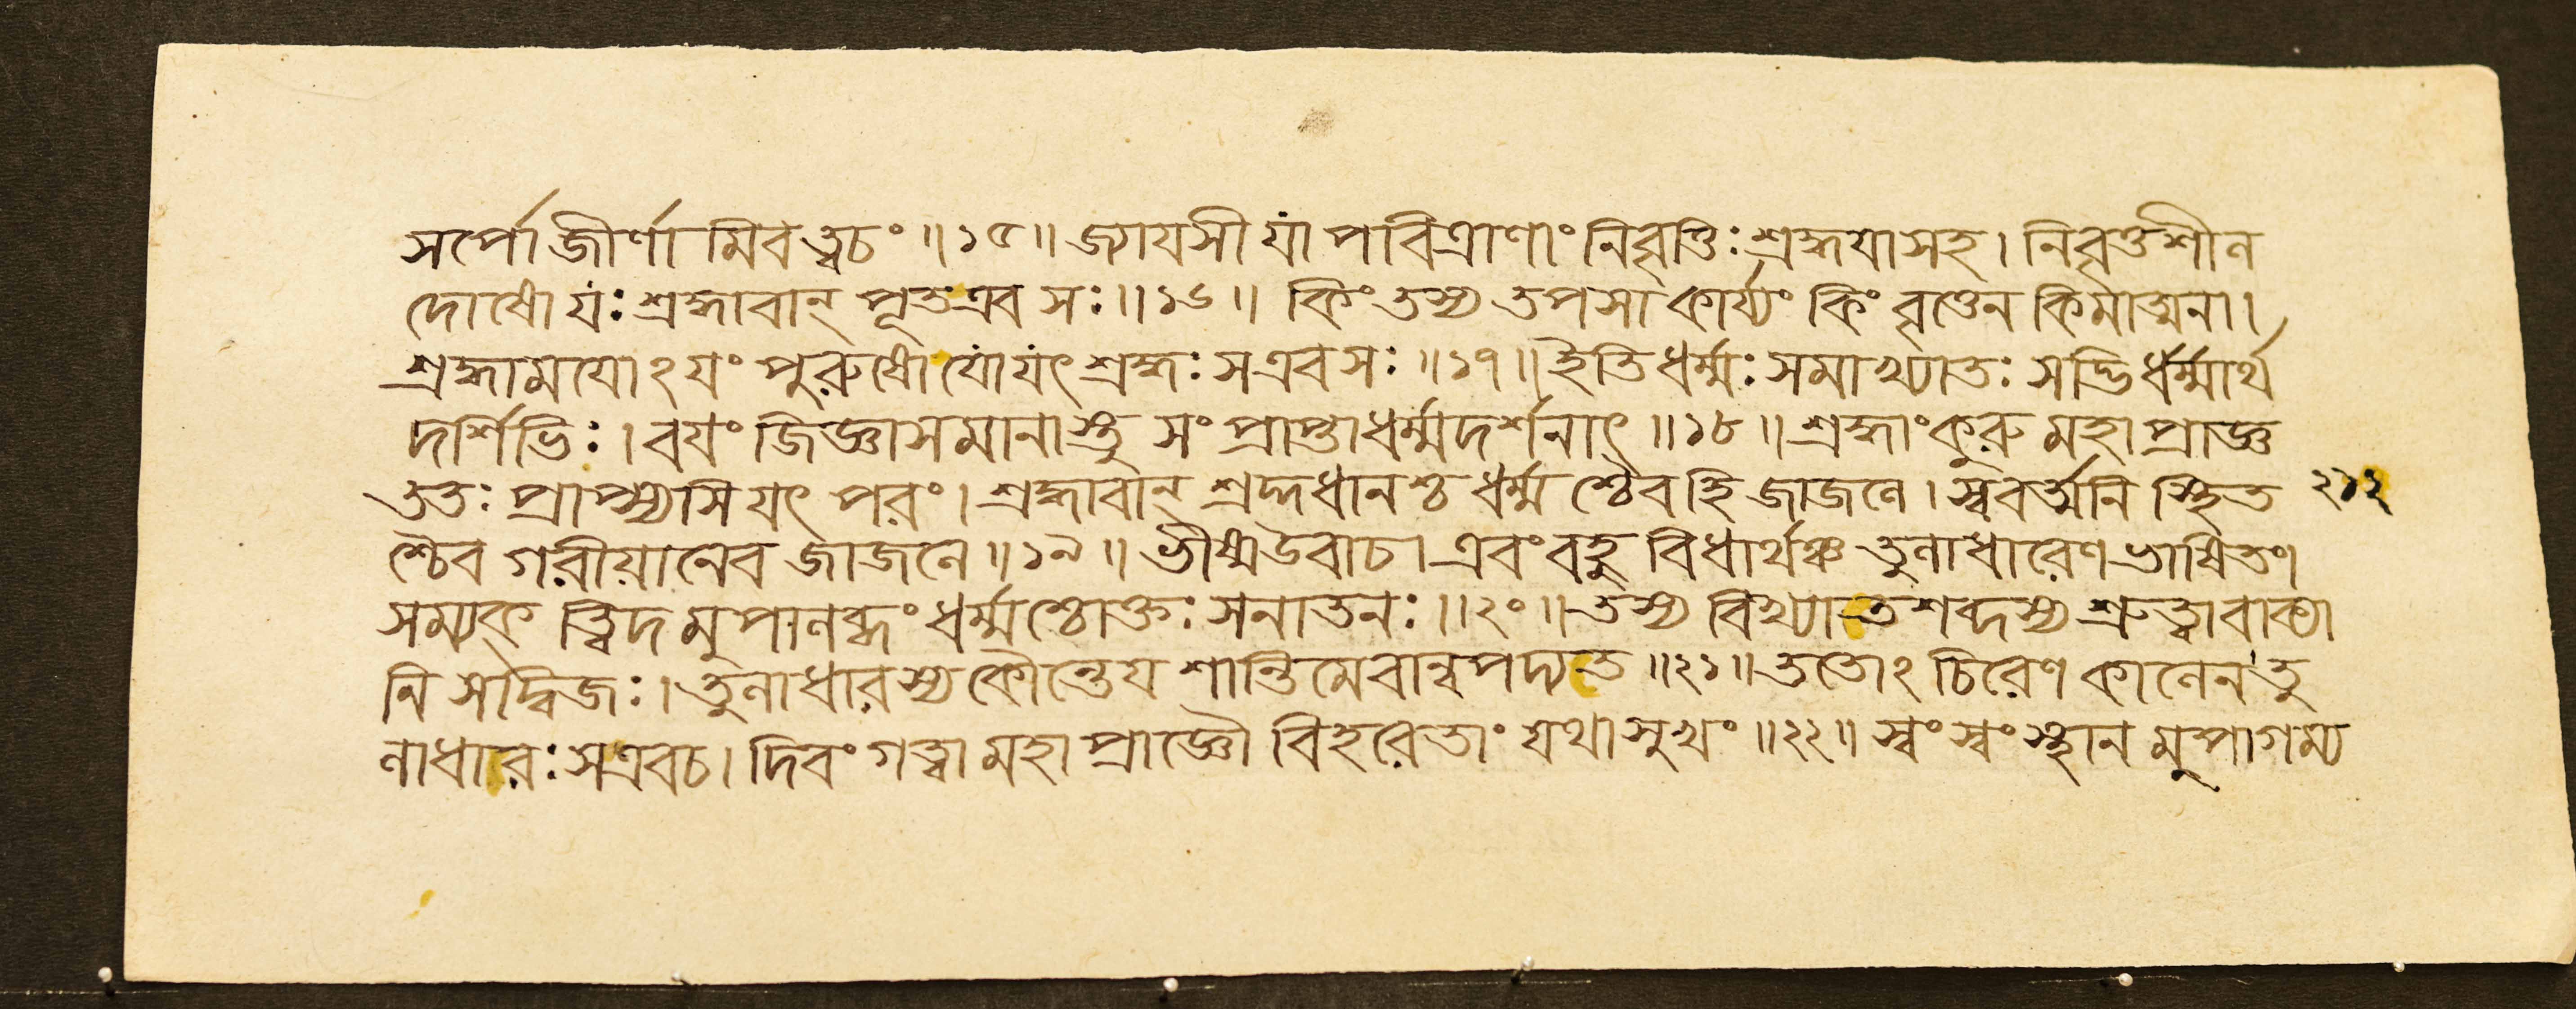 সর্পো জীর্ণামিবত্বচং ॥১৫॥ জ্যায়সী যা পবিত্রাণাং নিবৃত্তিঃ শ্রদ্ধয়া সহ। নিবৃত্তশীল
দোষো যঃ শ্রদ্ধাবান্ পূত এব সঃ ॥১৬॥ কিং তস্য তপসা কার্য্যং কিং বৃত্তেন কিমাত্মনা।
শ্রদ্ধাময়োঽয়ং পুরুষো যো যৎ শ্রদ্ধঃ স এব সঃ ॥১৭॥ ইতি ধর্ম্মঃ সমাখ্যাতঃ সদ্ভির্ধর্ম্মার্থ
দর্শিভিঃ। বয়ং জিজ্ঞাসমানাস্তু সংপ্রাপ্তা ধর্ম্মদর্শনাৎ ॥১৮॥ শ্রদ্ধাং কুরু মহাপ্রাজ্ঞ
ততঃ প্রাপ্স্যসি যৎ পরং। শ্রদ্ধাবান্ শ্রদ্দধানশ্চ ধর্ম্মশ্চৈব হি জাজলে। স্ববর্ত্মনি স্থিত ২১২
শ্চৈব গরীয়ানেব জাজলে ॥১৯॥ ভীষ্ম উবাচ। এবং বহুবিধার্থঞ্চ তুলাধারেণ ভাষিতং।
সম্যক ত্বিদমুপালব্ধং ধর্ম্মশ্চোক্তঃ সনাতনঃ ॥২০॥ তস্য বিখ্যাতশব্দস্য শ্রুত্বা বাক্যা
নি স দ্বিজঃ। তুলাধারস্য কৌন্তেয় শান্তিমেবান্বপদ্যত ॥২১॥ ততোঽচিরেণ কালেন তু
লাধারঃ স এব চ। দিবং গত্বা মহাপ্রাজ্ঞৌ বিহরেতাং যথাসুখং ॥২২॥ স্বং স্বং স্থানমুপাগম্য